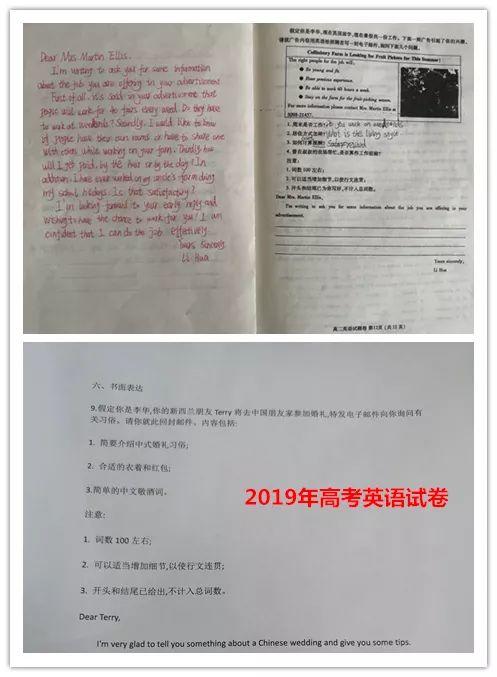 Dear Mrs Martin Ellis.
I'm writing to ask you for some information
about the job you are offering in your advertisement
First of all, it's said in your advertisement that
people will work for 40 hours every week. Do they have
to work at weekends? Secondly, I would like to know
if people have their own rooms or have to share one
with others while working on your farm. Thirdly how
will I get paid, by the hour or by the day? In
addition, I have ever worked on my uncle's farm during
my school holidays. Is that satisfactory?
I'm looking forward to your early reply and
wishing to have the chance to work for you! I am
confident that I can do the job effectively.
Yours Sincerely
Li Hua
假定你是李华,现在英国留学,
请就广告内容用英语给招聘者写一封电子邮件,询问下面几个问题。
Farm is Looking for Fruit Pickers for This Summer!
The right people for the job will,
Be young and fit.
Have previous experience.
Be able to work 40 hours a week.
Stay on the farm for the fruit-picking season.
For more information please contact Mrs. Martin Ellis at
1.周末是否工作?
2.居住方式怎样? What is the living style
3.如何计算报酬?
注意:
1.词数 100 左右;
2.可以适当增加细节,以使行文连贯;
3.开头和结尾已为你写好,不计入总词数。
Dear Mrs. Martin Ellis,
I'm writing to ask you for some information about the job you are offering in your
advertisement.
Yours sincerely,
Li Hua
高二英语试题卷 第12页(共12页)
六、书面表达
9.假定你是李华,你的新西兰朋友 Terry 将去中国朋友家参加婚礼,特发电子邮件向你询问有
关习俗。请你就此回封邮件。内容包括:
1. 简要介绍中式婚礼习俗;
2. 合适的衣着和红包;
3.简单的中文敬酒词。
2019年高考英语试卷
注意:
1. 词数 100 左右;
2. 可以适当增加细节,以使行文连贯;
3. 开头和结尾已给出,不计入总词数。
Dear Terry,
I'm very glad to tell you something about a Chinese wedding and give you some tips.